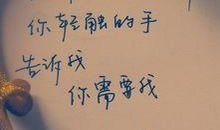 你轻触的手
告诉我
你需要我